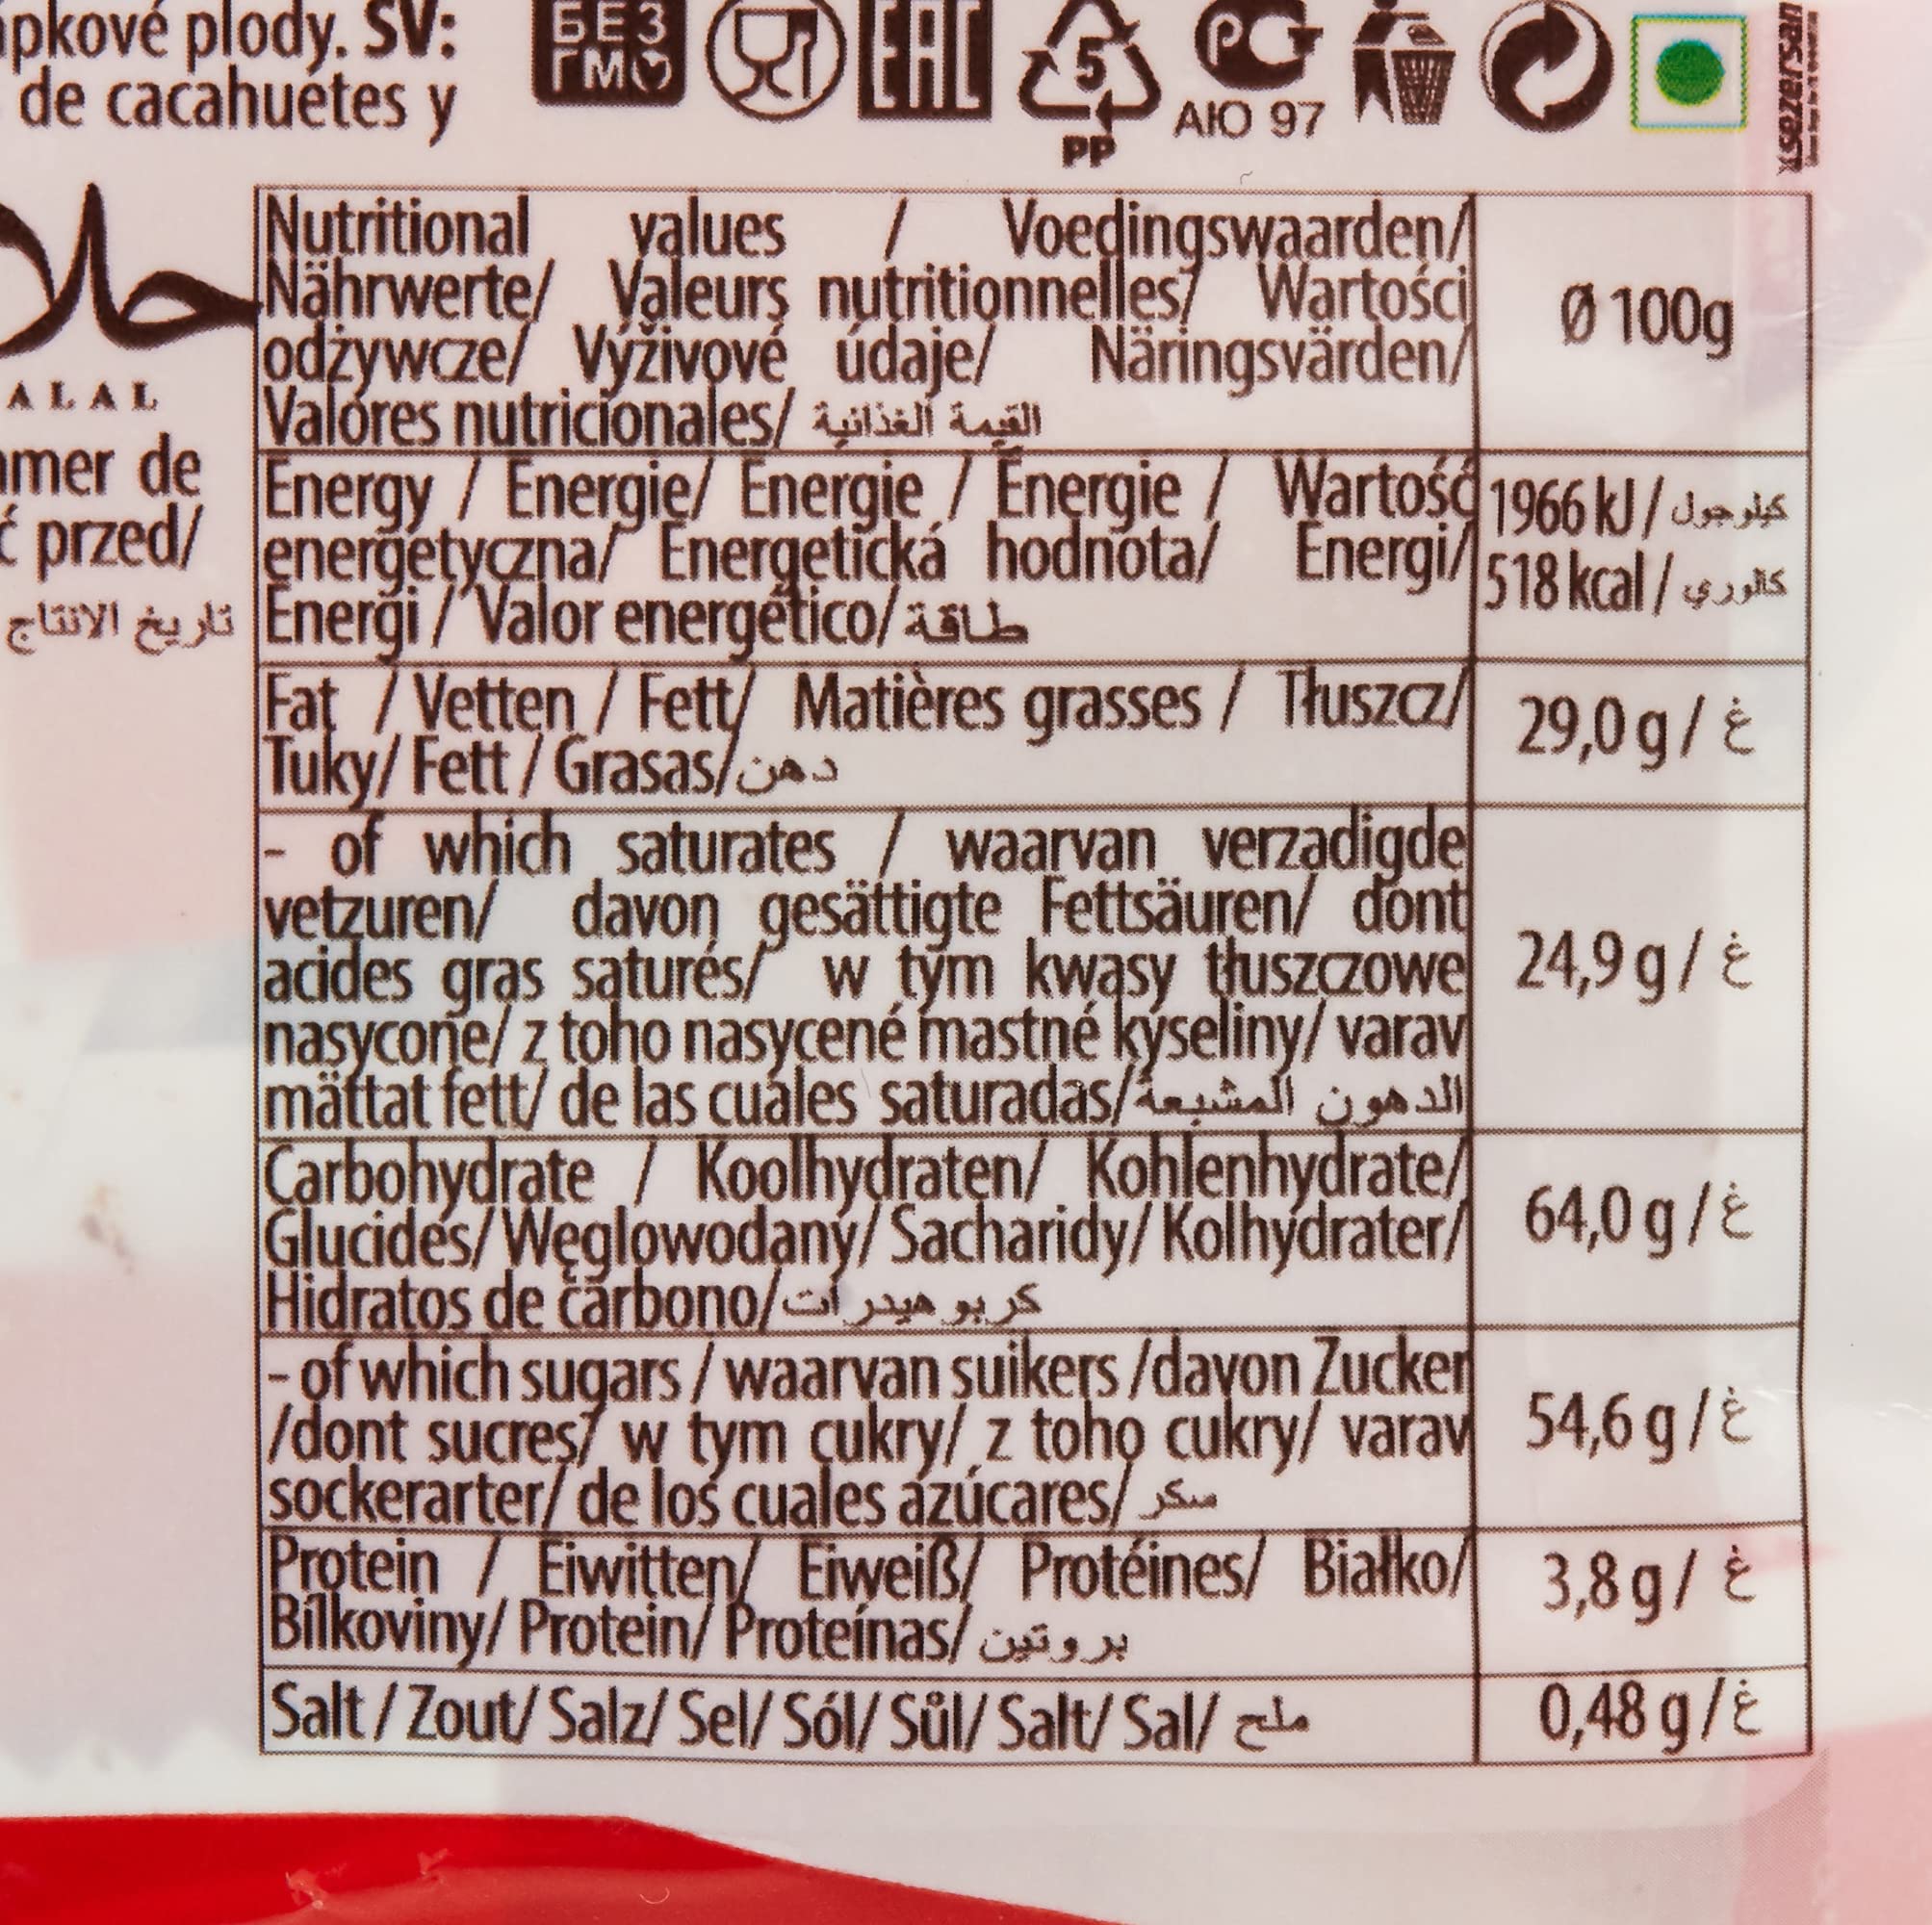 ipkové plody. SV:
de cacahuetes y
БЕЗ
ГМ
EAC
5
PP
РСТ
АЮ 97
sezersan
حلا
ALAL
amer de
ć przed/
تاريخ الانتاج
Nutritional values / Voedingswaarden/
Nährwerte/ Valeurs nutritionnelles/ Wartości
odżywcze/ Výživové údaje/ Näringsvärden/
Valores nutricionales/ القيمة الغذائية
Ø 100g
Energy / Energie/ Energie / Énergie / Wartość
energetyczna/ Energetická hodnota/ Energi/
Energi / Valor energético/ طاقة
1966 kJ / كيلوجول
518 kcal / كالوري
Fat / Vetten / Fett/ Matières grasses / Tłuszcz/
Tuky/ Fett / Grasas/ دهن
29,0 g / غ
- of which saturates / waarvan verzadigde
vetzuren/ davon gesättigte Fettsäuren/ dont
acides gras saturés/ w tym kwasy tłuszczowe
nasycone/ z toho nasycené mastné kyseliny/ varav
mättat fett/ de las cuales saturadas/ الدهون المشبعة
24,9 g / غ
Carbohydrate / Koolhydraten/ Kohlenhydrate/
Glucides/ Węglowodany/ Sacharidy/ Kolhydrater/
Hidratos de carbono/ كربوهيدرات
64,0 g / غ
- of which sugars / waarvan suikers /davon Zucker
/dont sucres/ w tym cukry/ z toho cukry/ varav
sockerarter/ de los cuales azúcares/ سكر
54,6 g / غ
Protein / Eiwitten/ Eiweiß/ Protéines/ Białko/
Bílkoviny/ Protein/ Proteínas/ بروتين
3,8 g / غ
Salt / Zout/ Salz/ Sel/ Sól/ Sůl/ Salt/ Sal/ ملح
0,48 g / غ